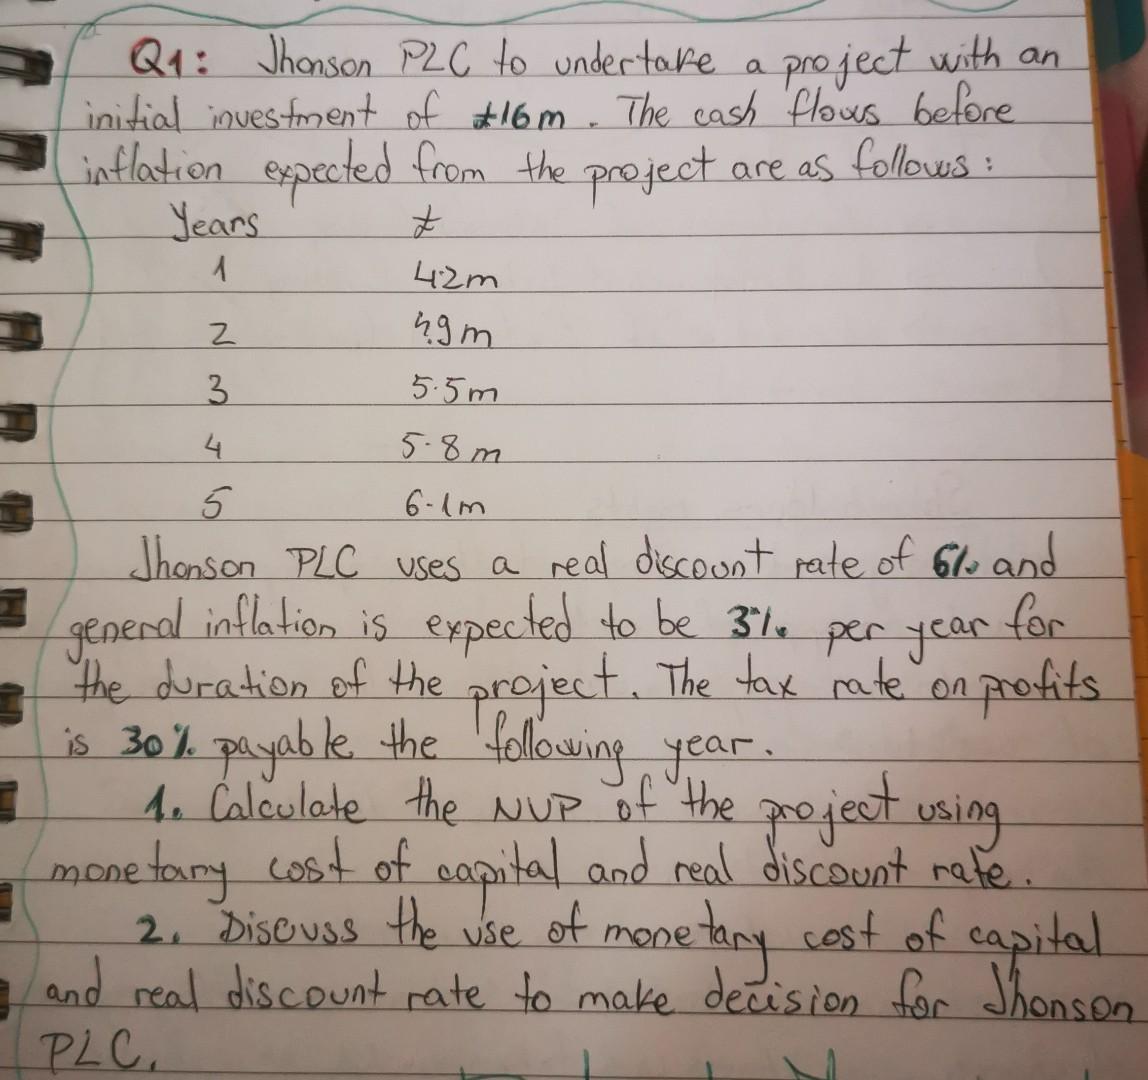 Q1: Jhonson PLC to undertake a project with an
initial investment of £16m. The cash flows before
inflation expected from the project are as follows:
Years £
1 4.2m
2 4.9m
3 5.5m
4 5.8m
5 6.1m
Jhonson PLC uses a real discount rate of 6% and
general inflation is expected to be 3% per year for
the duration of the project. The tax rate on profits
is 30% payable the following year.
1. Calculate the NVP of the project using
monetary cost of capital and real discount rate.
2. Discuss the use of monetary cost of capital
and real discount rate to make decision for Jhonson
PLC.